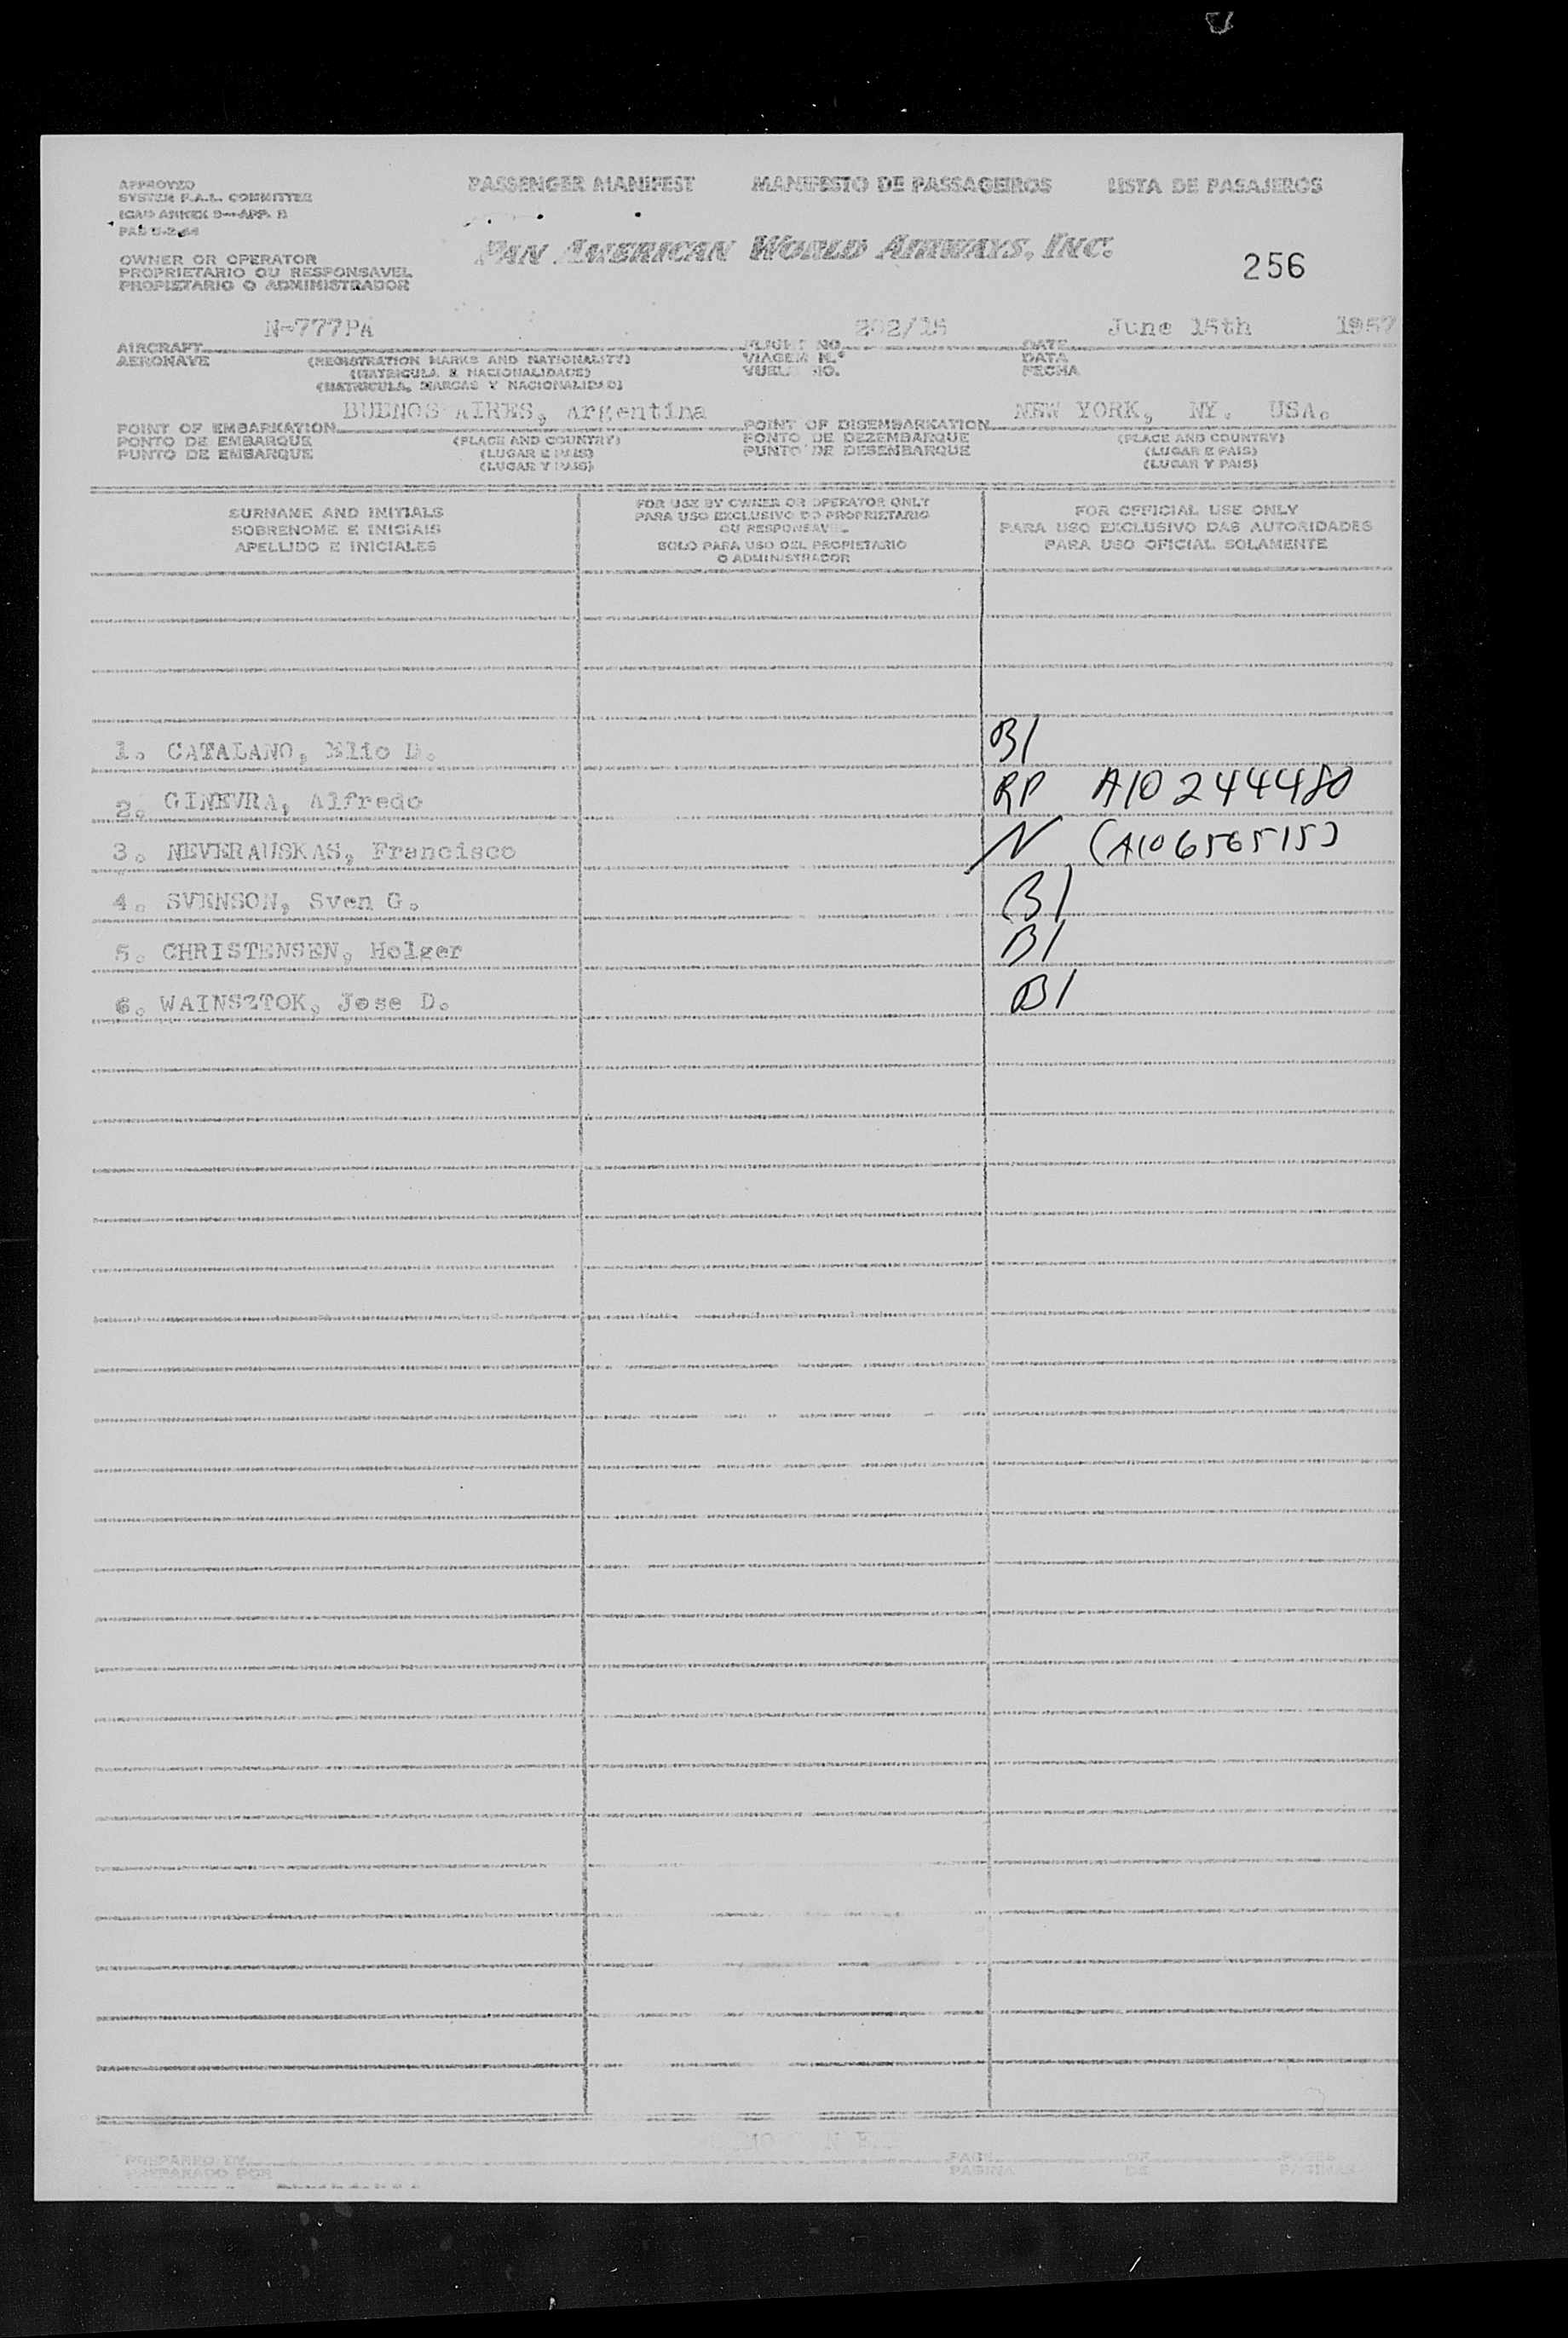 APPROVED
SYSTEM F.A.L. COMMITTEE
ICAO ANNEX 9—APP. B
PASSENGER MANIFEST MANIFESTO DE PASSAGEIROS LISTA DE PASAJEROS
PAN AMERICAN WORLD AIRWAYS, INC.
256
OWNER OR OPERATOR
PROPRIETARIO OU RESPONSAVEL
PROPIETARIO O ADMINISTRADOR
N-777PA 202/15 June 15th 1957
AIRCRAFT FLIGHT NO. DATE
AERONAVE (REGISTRATION MARKS AND NATIONALITY) VIAGEM N.º DATA
(MATRICULA E NACIONALIDADE) VUELO NO. FECHA
(MATRICULA, MARCAS Y NACIONALIDAD)
BUENOS AIRES, Argentina NEW YORK, NY. USA.
POINT OF EMBARKATION POINT OF DISEMBARKATION
PONTO DE EMBARQUE (PLACE AND COUNTRY) PONTO DE DEZEMBARQUE (PLACE AND COUNTRY)
PUNTO DE EMBARQUE (LUGAR E PAIS) PUNTO DE DESEMBARQUE (LUGAR E PAIS)
(LUGAR Y PAIS) (LUGAR Y PAIS)
SURNAME AND INITIALS
SOBRENOME E INICIAIS
APELLIDO E INICIALES
FOR USE BY OWNER OR OPERATOR ONLY
PARA USO EXCLUSIVO DO PROPRIETARIO
OU RESPONSAVEL
SOLO PARA USO DEL PROPIETARIO
O ADMINISTRADOR
FOR OFFICIAL USE ONLY
PARA USO EXCLUSIVO DAS AUTORIDADES
PARA USO OFICIAL SOLAMENTE
1. CATALANO, Elio D. B1
2. GINEVRA, Alfredo RP A10 244480
3. NEVERAUSKAS, Francisco N (A10656515)
4. SVENSON, Sven G. B1
5. CHRISTENSEN, Holger B1
6. WAINSZTOK, Jose D. B1
PREPARED BY PAGE OF PAGES
PREPARADO POR PAGINA DE PAGINAS